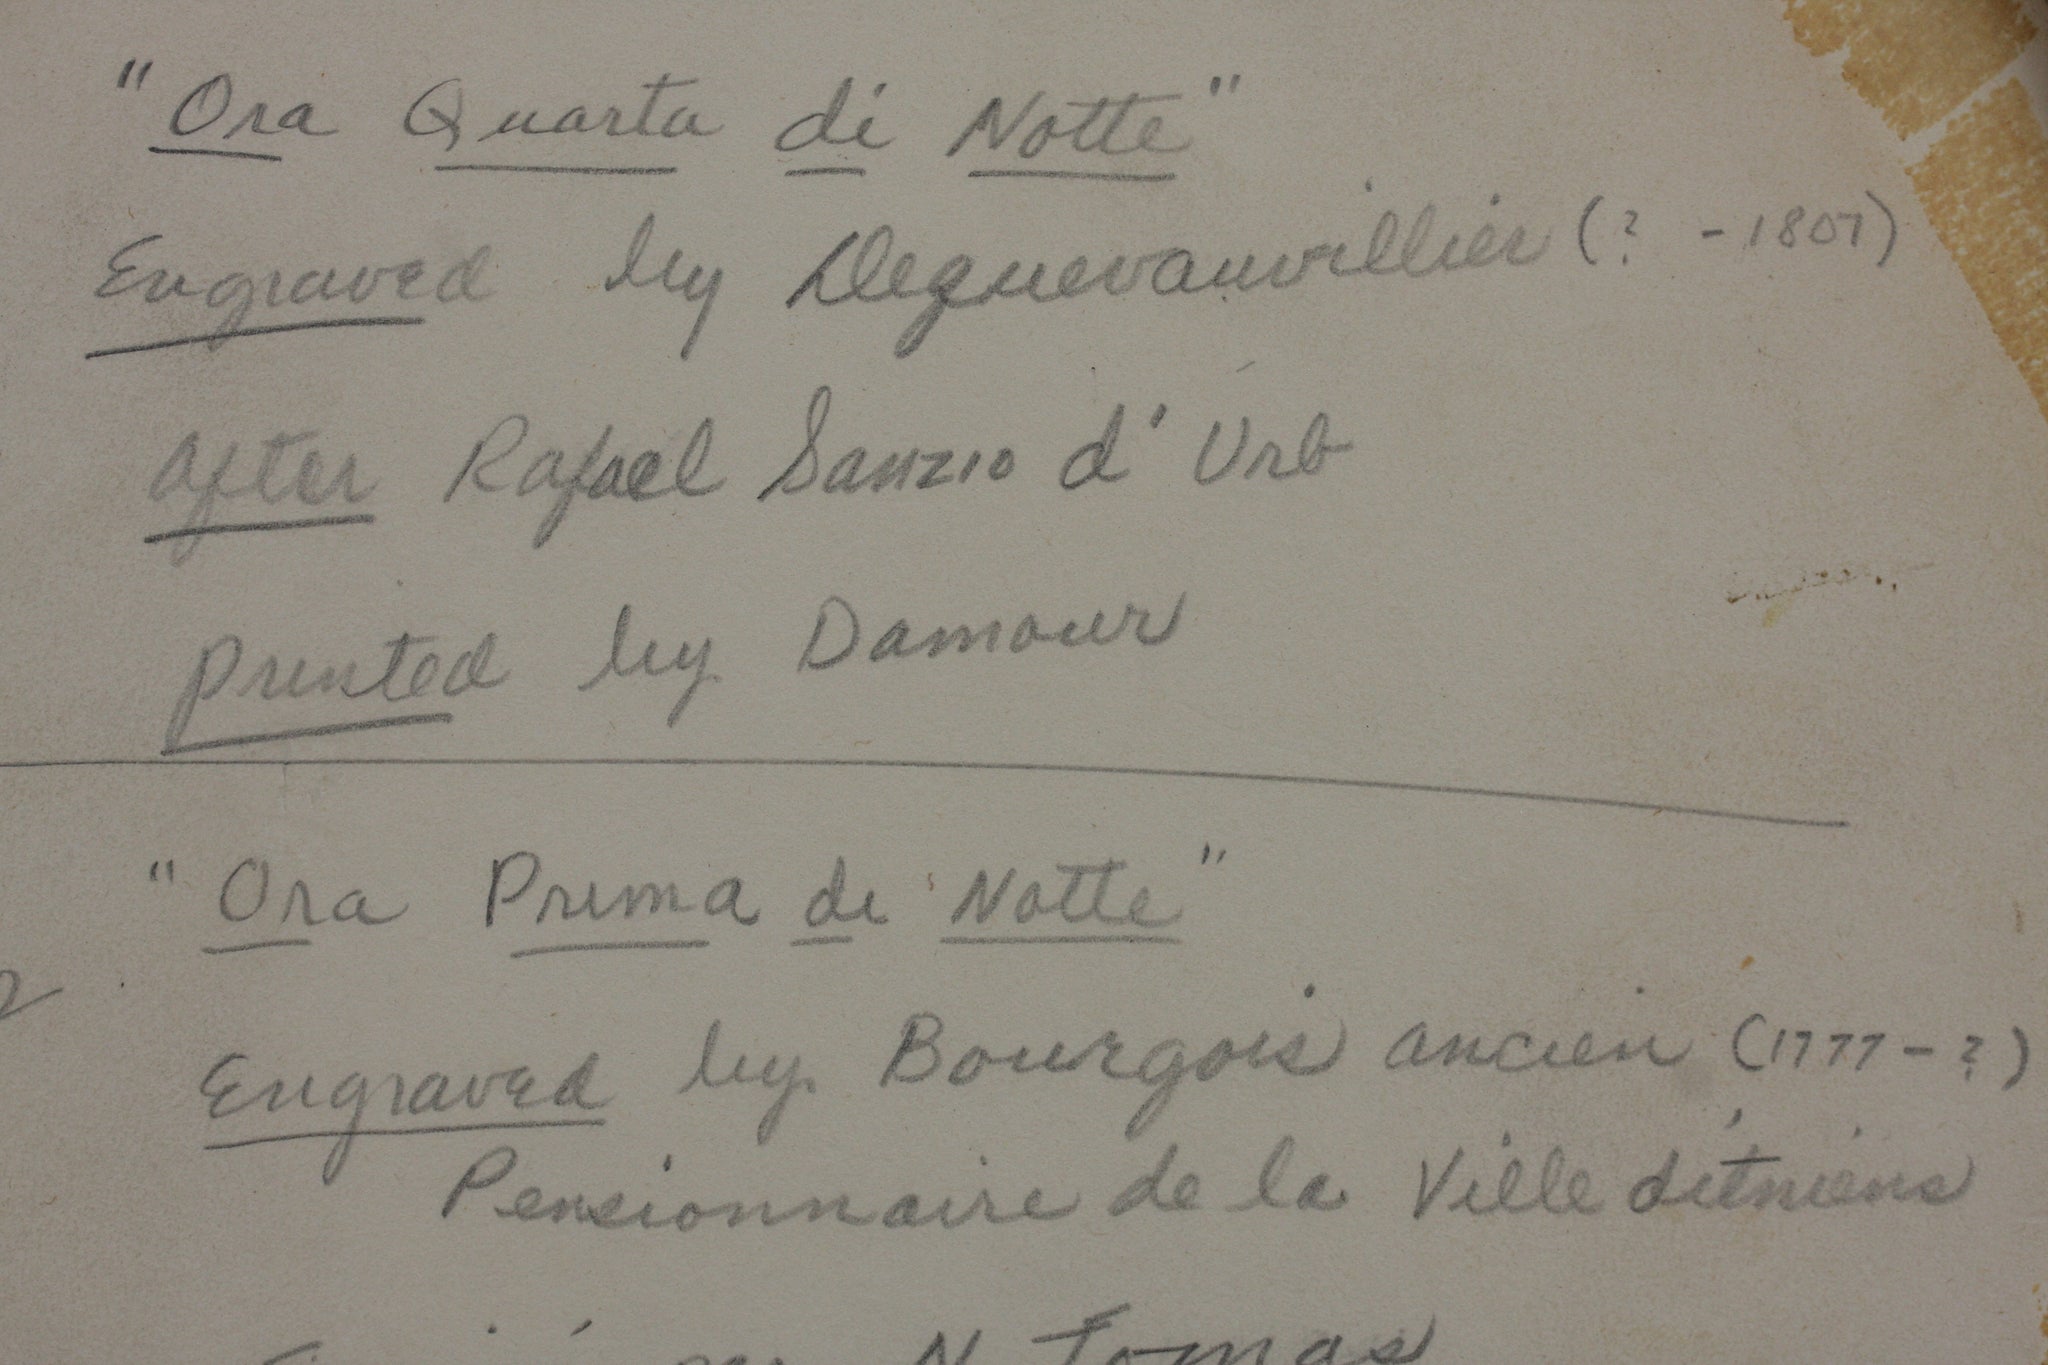 "Ora Quarta di Notte"
Engraved by Deguevauvillier (? - 1807)
After Rafael Sanzio d' Urb
Printed by Damour
"Ora Prima di Notte"
Engraved by Bourgois ancien (1777 - ?)
Pensionnaire de la Ville
par N. Tomas